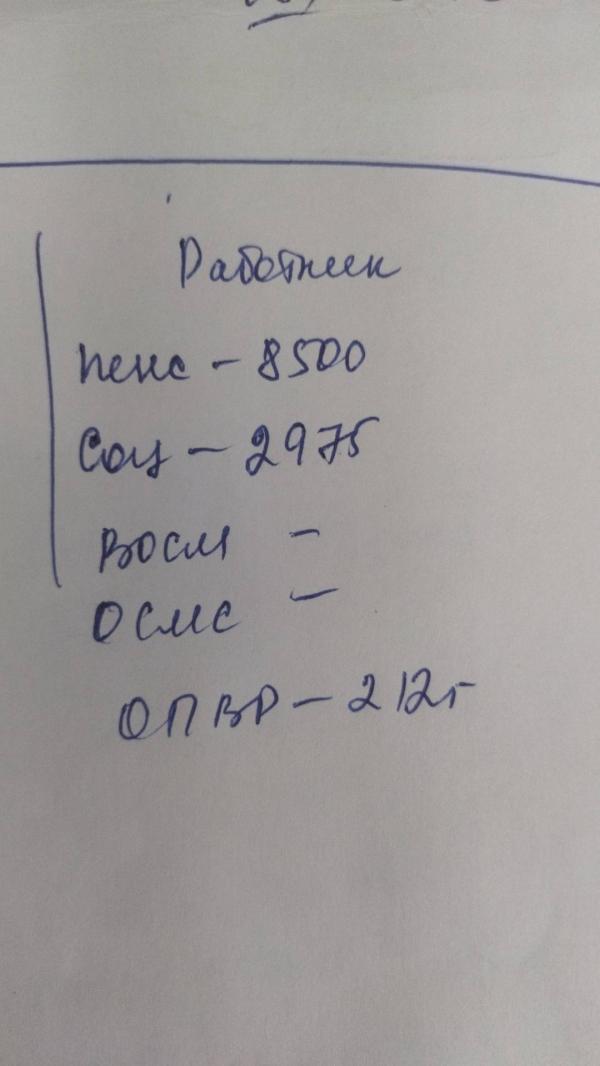 Работник
пенс - 8500
Соц - 2975
ВОСМ -
ОСМС -
ОПВР - 2125